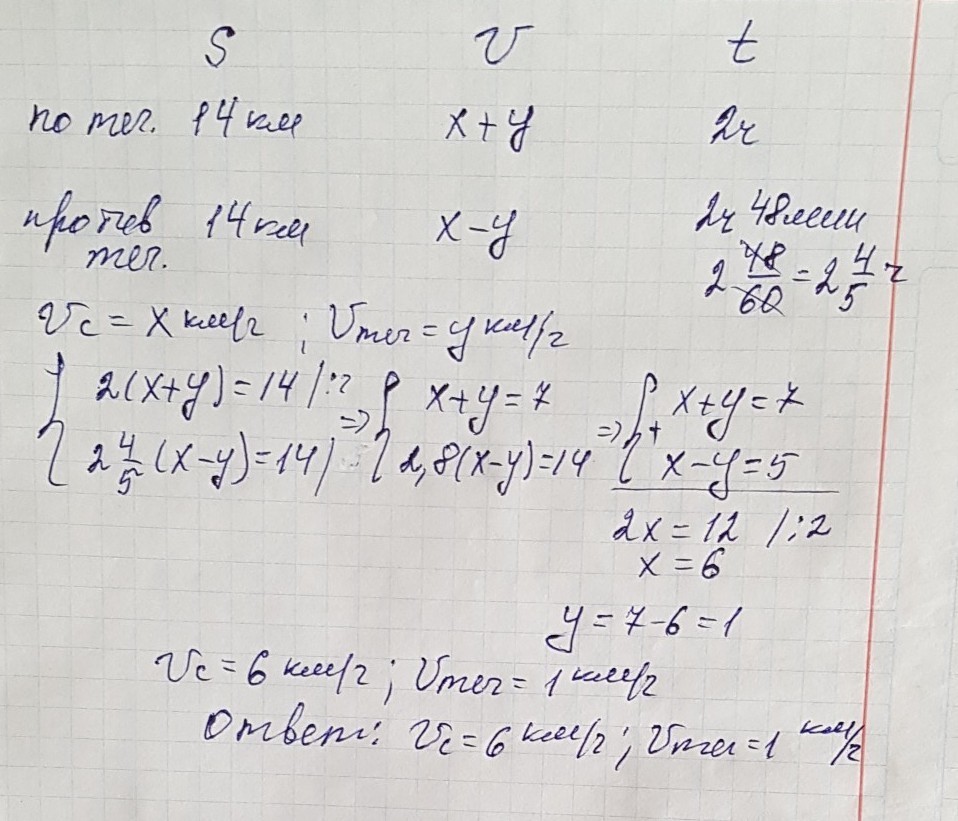 S V t
по теч. 14 км x+y 2ч
против 14 км x-y 2ч 48мин
теч. 2 48/60 = 2 4/5 ч
Vc = x км/ч ; Vтеч = y км/ч
{ 2(x+y)=14 |:2 => { x+y=7 => { x+y=7
{ 2 4/5 (x-y)=14 | { 2,8(x-y)=14 + { x-y=5
2x = 12 /:2
x = 6
y = 7-6 = 1
Vc = 6 км/ч ; Vтеч = 1 км/ч
Ответ: Vc = 6 км/ч ; Vтеч = 1 км/ч